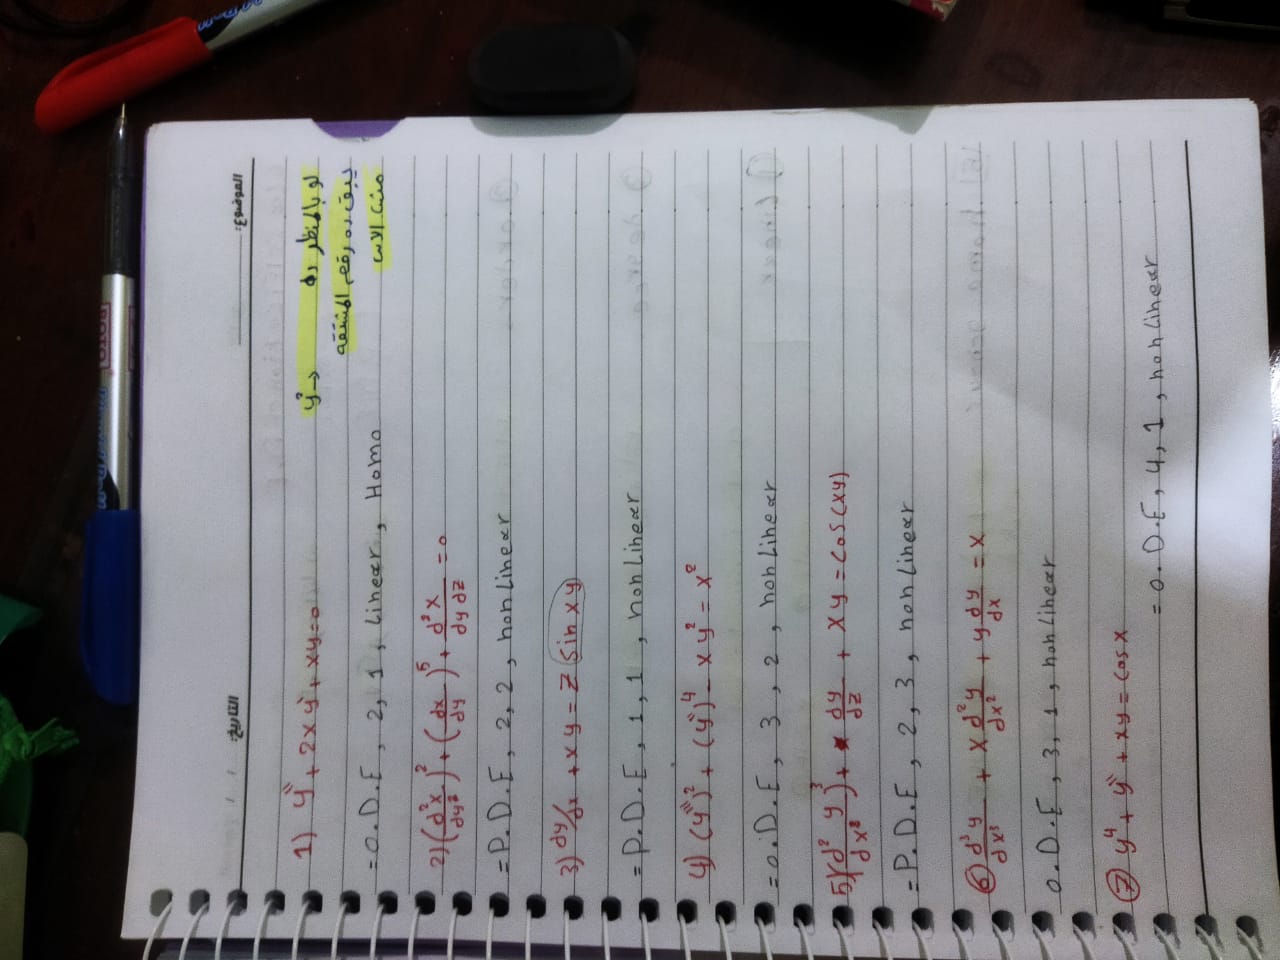 الموضوع: التاريخ: / /
1) y'' + 2xy' + xy = 0
لو بالمنظر ده → y²
يبقى ده رقم المشتقه
مش الاس
= O.D.E, 2, 1, Linear, Homo
2) (d²x/dy²)² + (dx/dy)⁵ + d²x/dy dz = 0
= P.D.E, 2, 2, non Linear
3) dy/dx + xy = z sin xy
= P.D.E, 1, 1, non Linear
4) (y''')² + (y'')⁴ - xy² = x²
= O.D.E, 3, 2, non Linear
5) (d² y/dx²)³ + dy/dz + xy = cos(xy)
= P.D.E, 2, 3, non Linear
6 d³y/dx³ + x d²y/dx² + y dy/dx = x
O.D.E, 3, 1, non Linear
7 y⁴ + y'' + xy = cos x
= O.D.E, 4, 1, non Linear